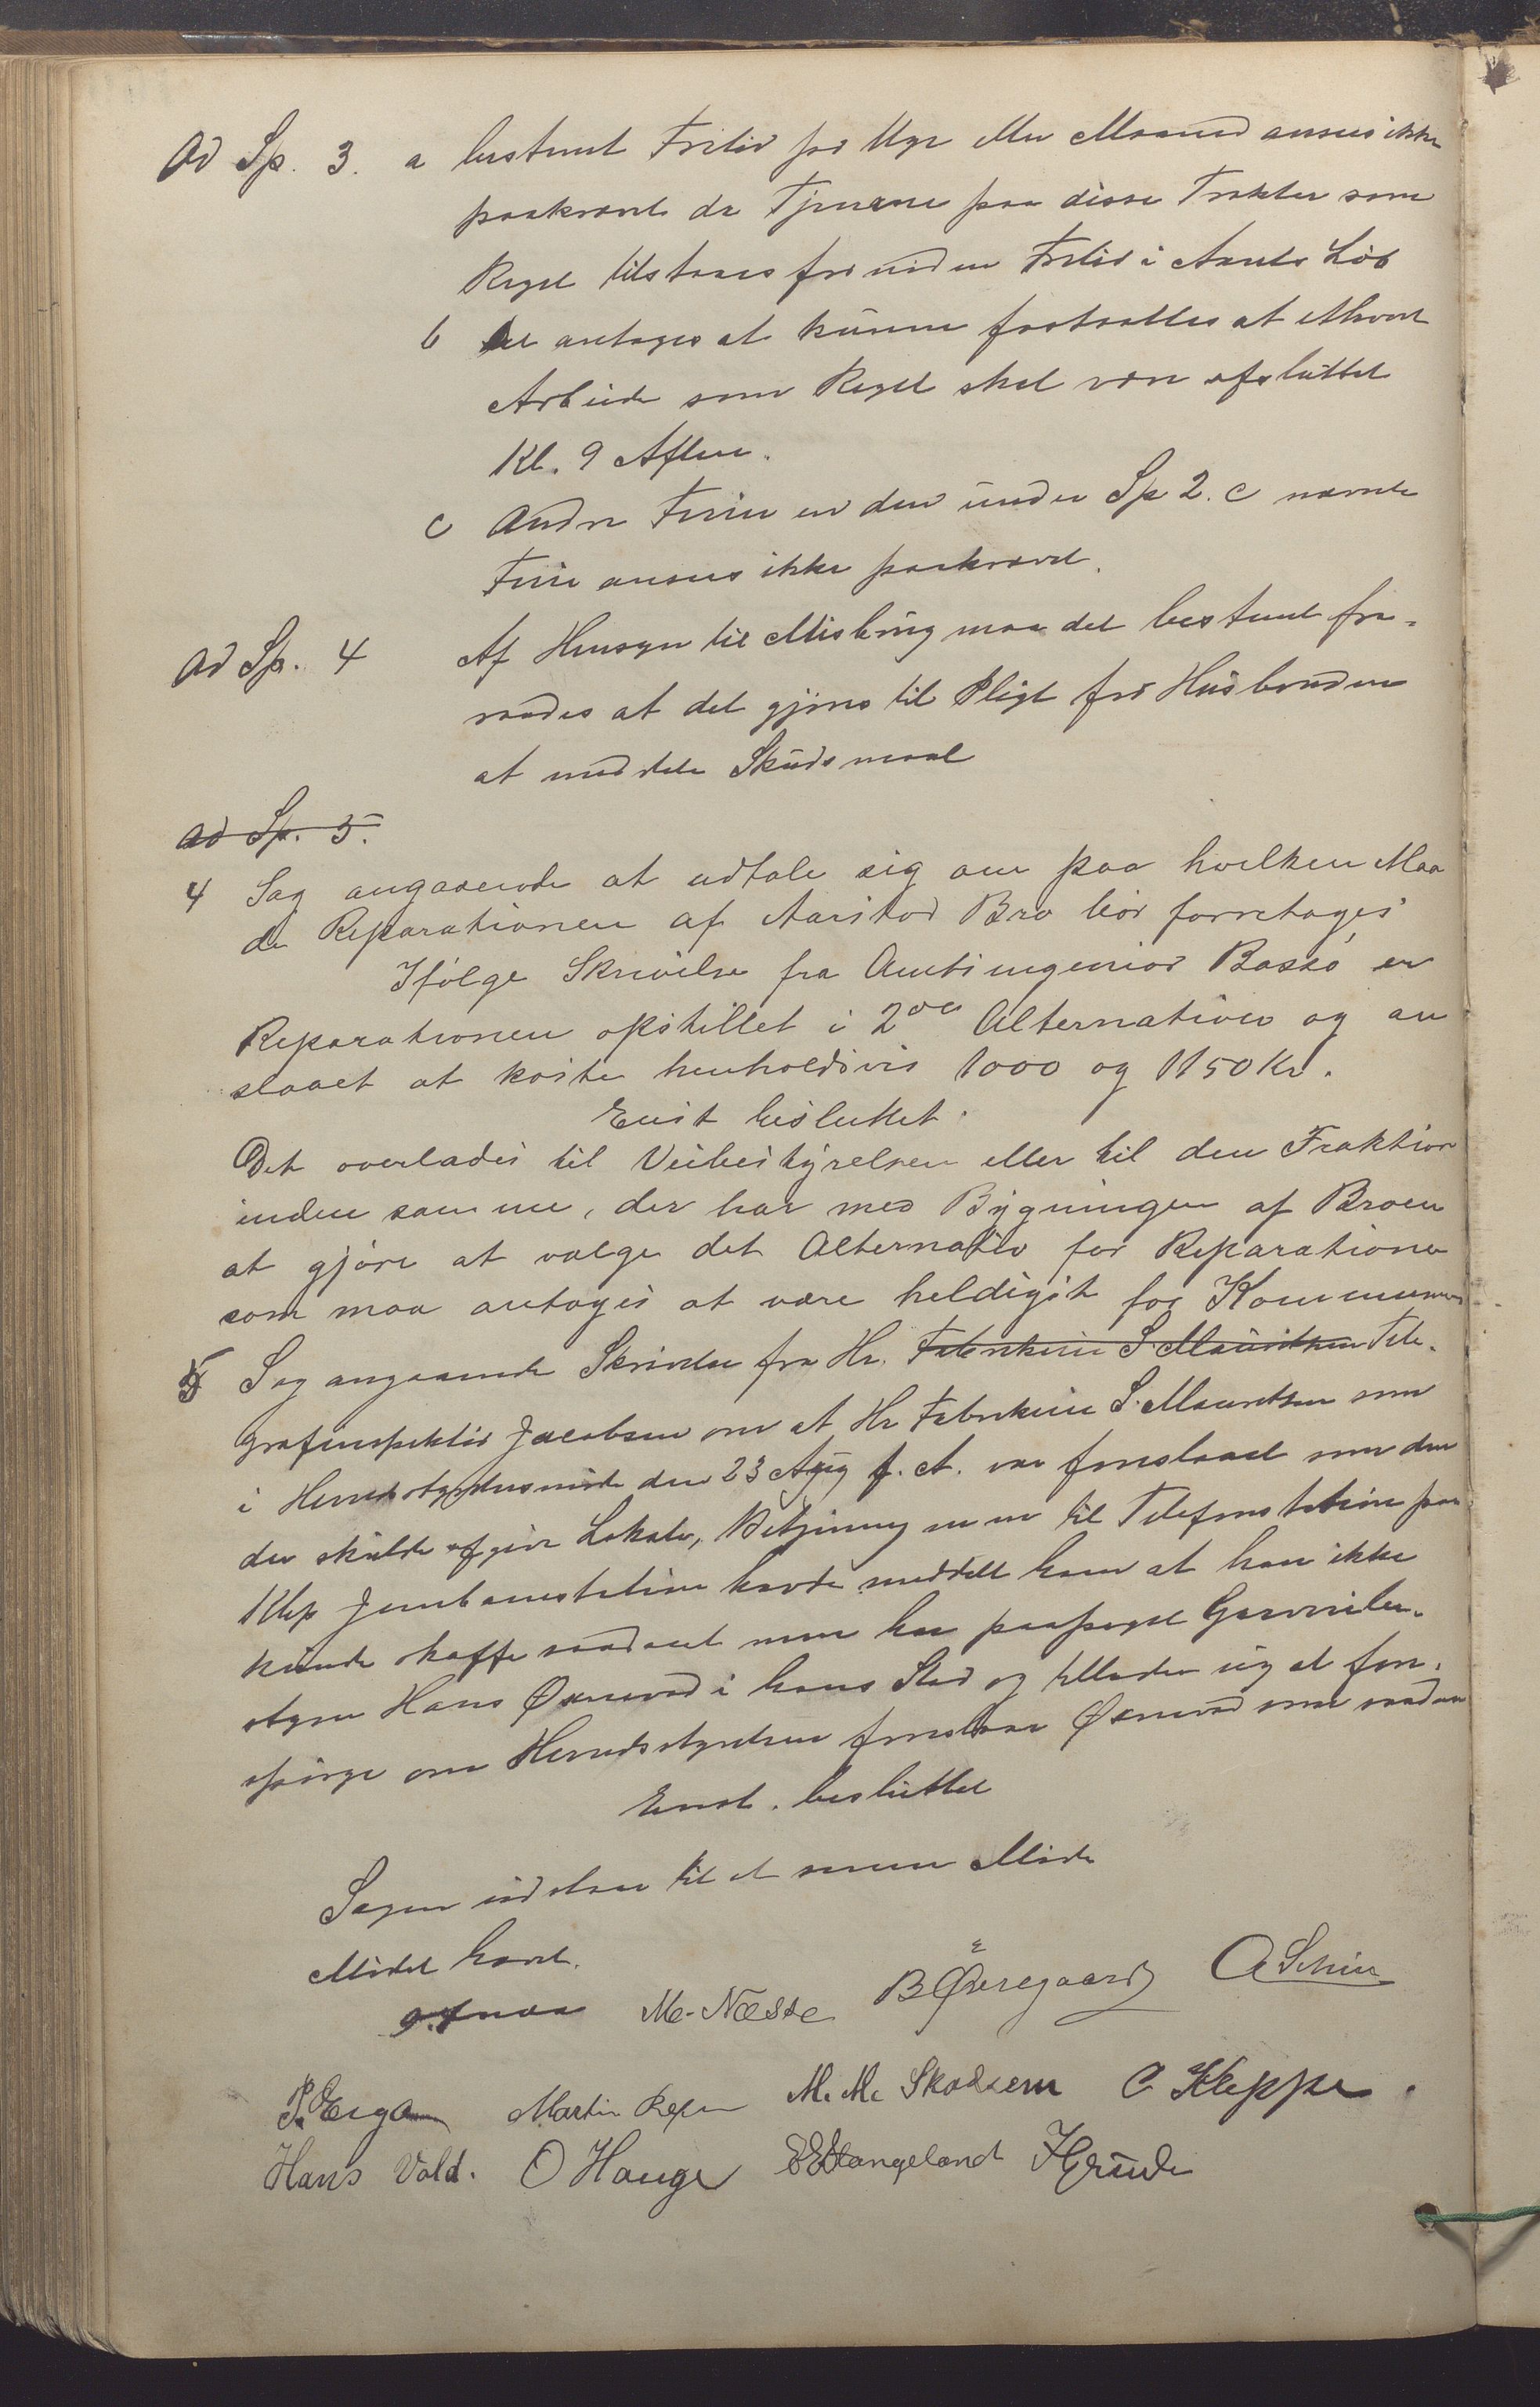 Ad Sp. 3. a bestemt Fritid pr Uge eller Maaned ansees ikke
paakrævet da Tjenerne paa disse Trakter som
Regel tilstaaes fornøden Fritid i Aarets Løb
b Det antages at kunne fastsættes at ethvert
Arbeide som Regel skal være afsluttet
Kl. 9 Aften.
c Andre Ferier en den under Sp 2. c nævnte
Ferie ansees ikke paakrævet.
Ad Sp. 4 Af Hensyn til Misbrug maa det bestemt fra-
raades at det gjøres til Pligt for Husbonden
at meddele Skudsmaal
Ad Sp. 5.
4 Sag angaaende at udtale sig om paa hvilken Maa
de Reparationen af Aarstad Bro bør forretages
Ifølge Skrivelse fra Amtsingeniør Bassø er
Reparationen opstillet i 2de Alternativer og an
slaaet at koste henholdsvis 1000 og 1150 Kr.
Enst besluttet.
Det overlades til Veibestyrelsen eller til den Fraktion
inden samme, der har med Bygningen af Broen
at gjøre at vælge det Alternativ for Reparationen
som maa antages at være heldigst for Kommunen
5 Sag angaaende Skrivelse fra Hr. Fabrikeier S. Mauritzen Tele-
grafinspektør Jacobsen om at Hr Fabrikeier S. Mauritzen som
i Herredsstyrelsesmøde den 23 Aug f. A. var foreslaaet som den
der skulde afgive Lokale, Betjening m m til Telefonstation paa
Klep Jernbanestation havde meddelt ham at han ikke
kunde skaffe saadant men har paapeget Garveribe-
styrer Hans Øxnevad i hans Sted og tillader sig at fore-
spørge om Herredsstyrelsen foreslaar Øxnevad som saadan
Enst. besluttet
Sagen udstaar til et senere Møde
Mødet hævet.
M. Næsse B Øvregaard A Schiu
P. Erga Martin M. M. Skadsem O Kleppe.
Hans Vold. O Hauge E E Stangeland H Grude